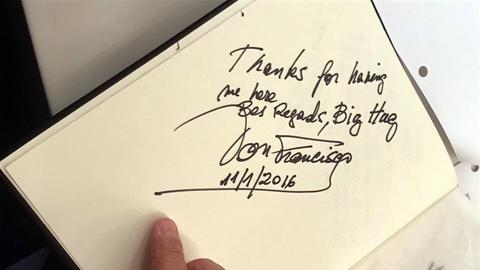 Thanks for having
me here
Bes Regads, Big Hug
Don Francisco
11/1/2016